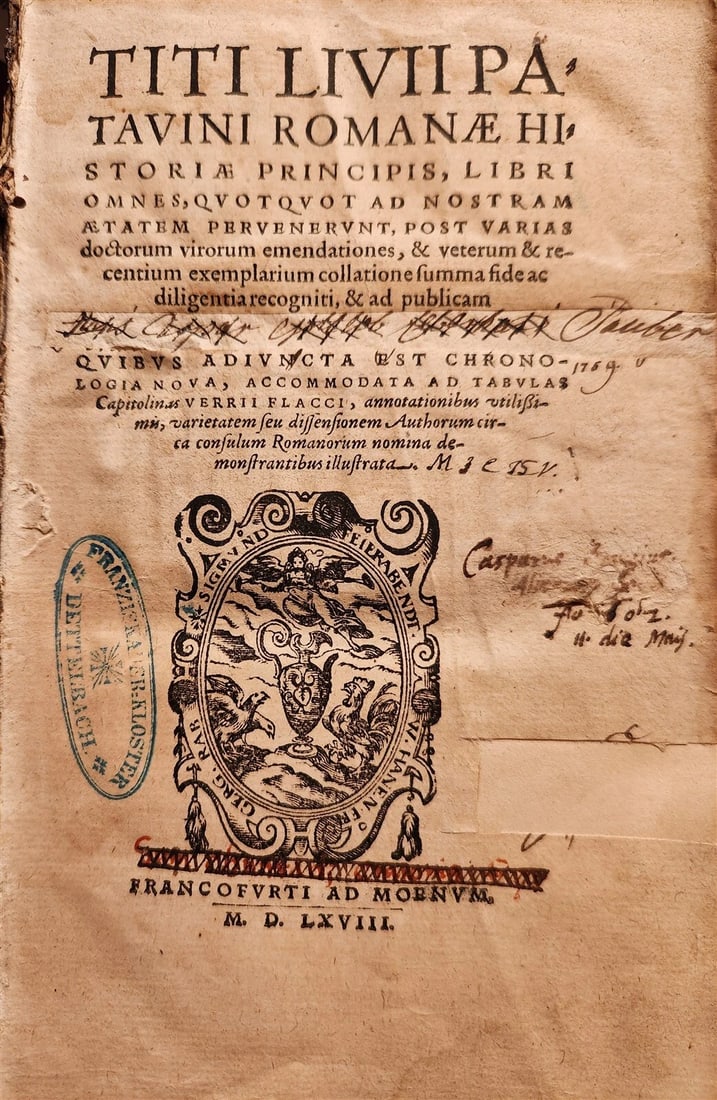 TITI LIVII PA-
TAVINI ROMANÆ HI-
STORIÆ PRINCIPIS, LIBRI
OMNES, QVOTQVOT AD NOSTRAM
ÆTATEM PERVENERVNT, POST VARIAS
doctorum virorum emendationes, & veterum & re-
centium exemplarium collatione ſumma fide ac
diligentia recogniti, & ad publicam
Tauber
QVIBVS ADIVNCTA EST CHRONO-
1769
LOGIA NOVA, ACCOMMODATA AD TABVLAS
Capitolinas VERRII FLACCI, annotationibus vtilißi-
mis, varietatem ſeu diſſenſionem Authorum cir-
ca conſulum Romanorum nomina de-
monſtrantibus illuſtrata.
SIGMVND FEIERABENDT.
GERG. RAB
W. HANEN. ER
FRANZISKANER-KLOSTER
* DETTELBACH. *
Casparus
11. die Maij.
FRANCOFVRTI AD MOENVM.
M. D. LXVIII.